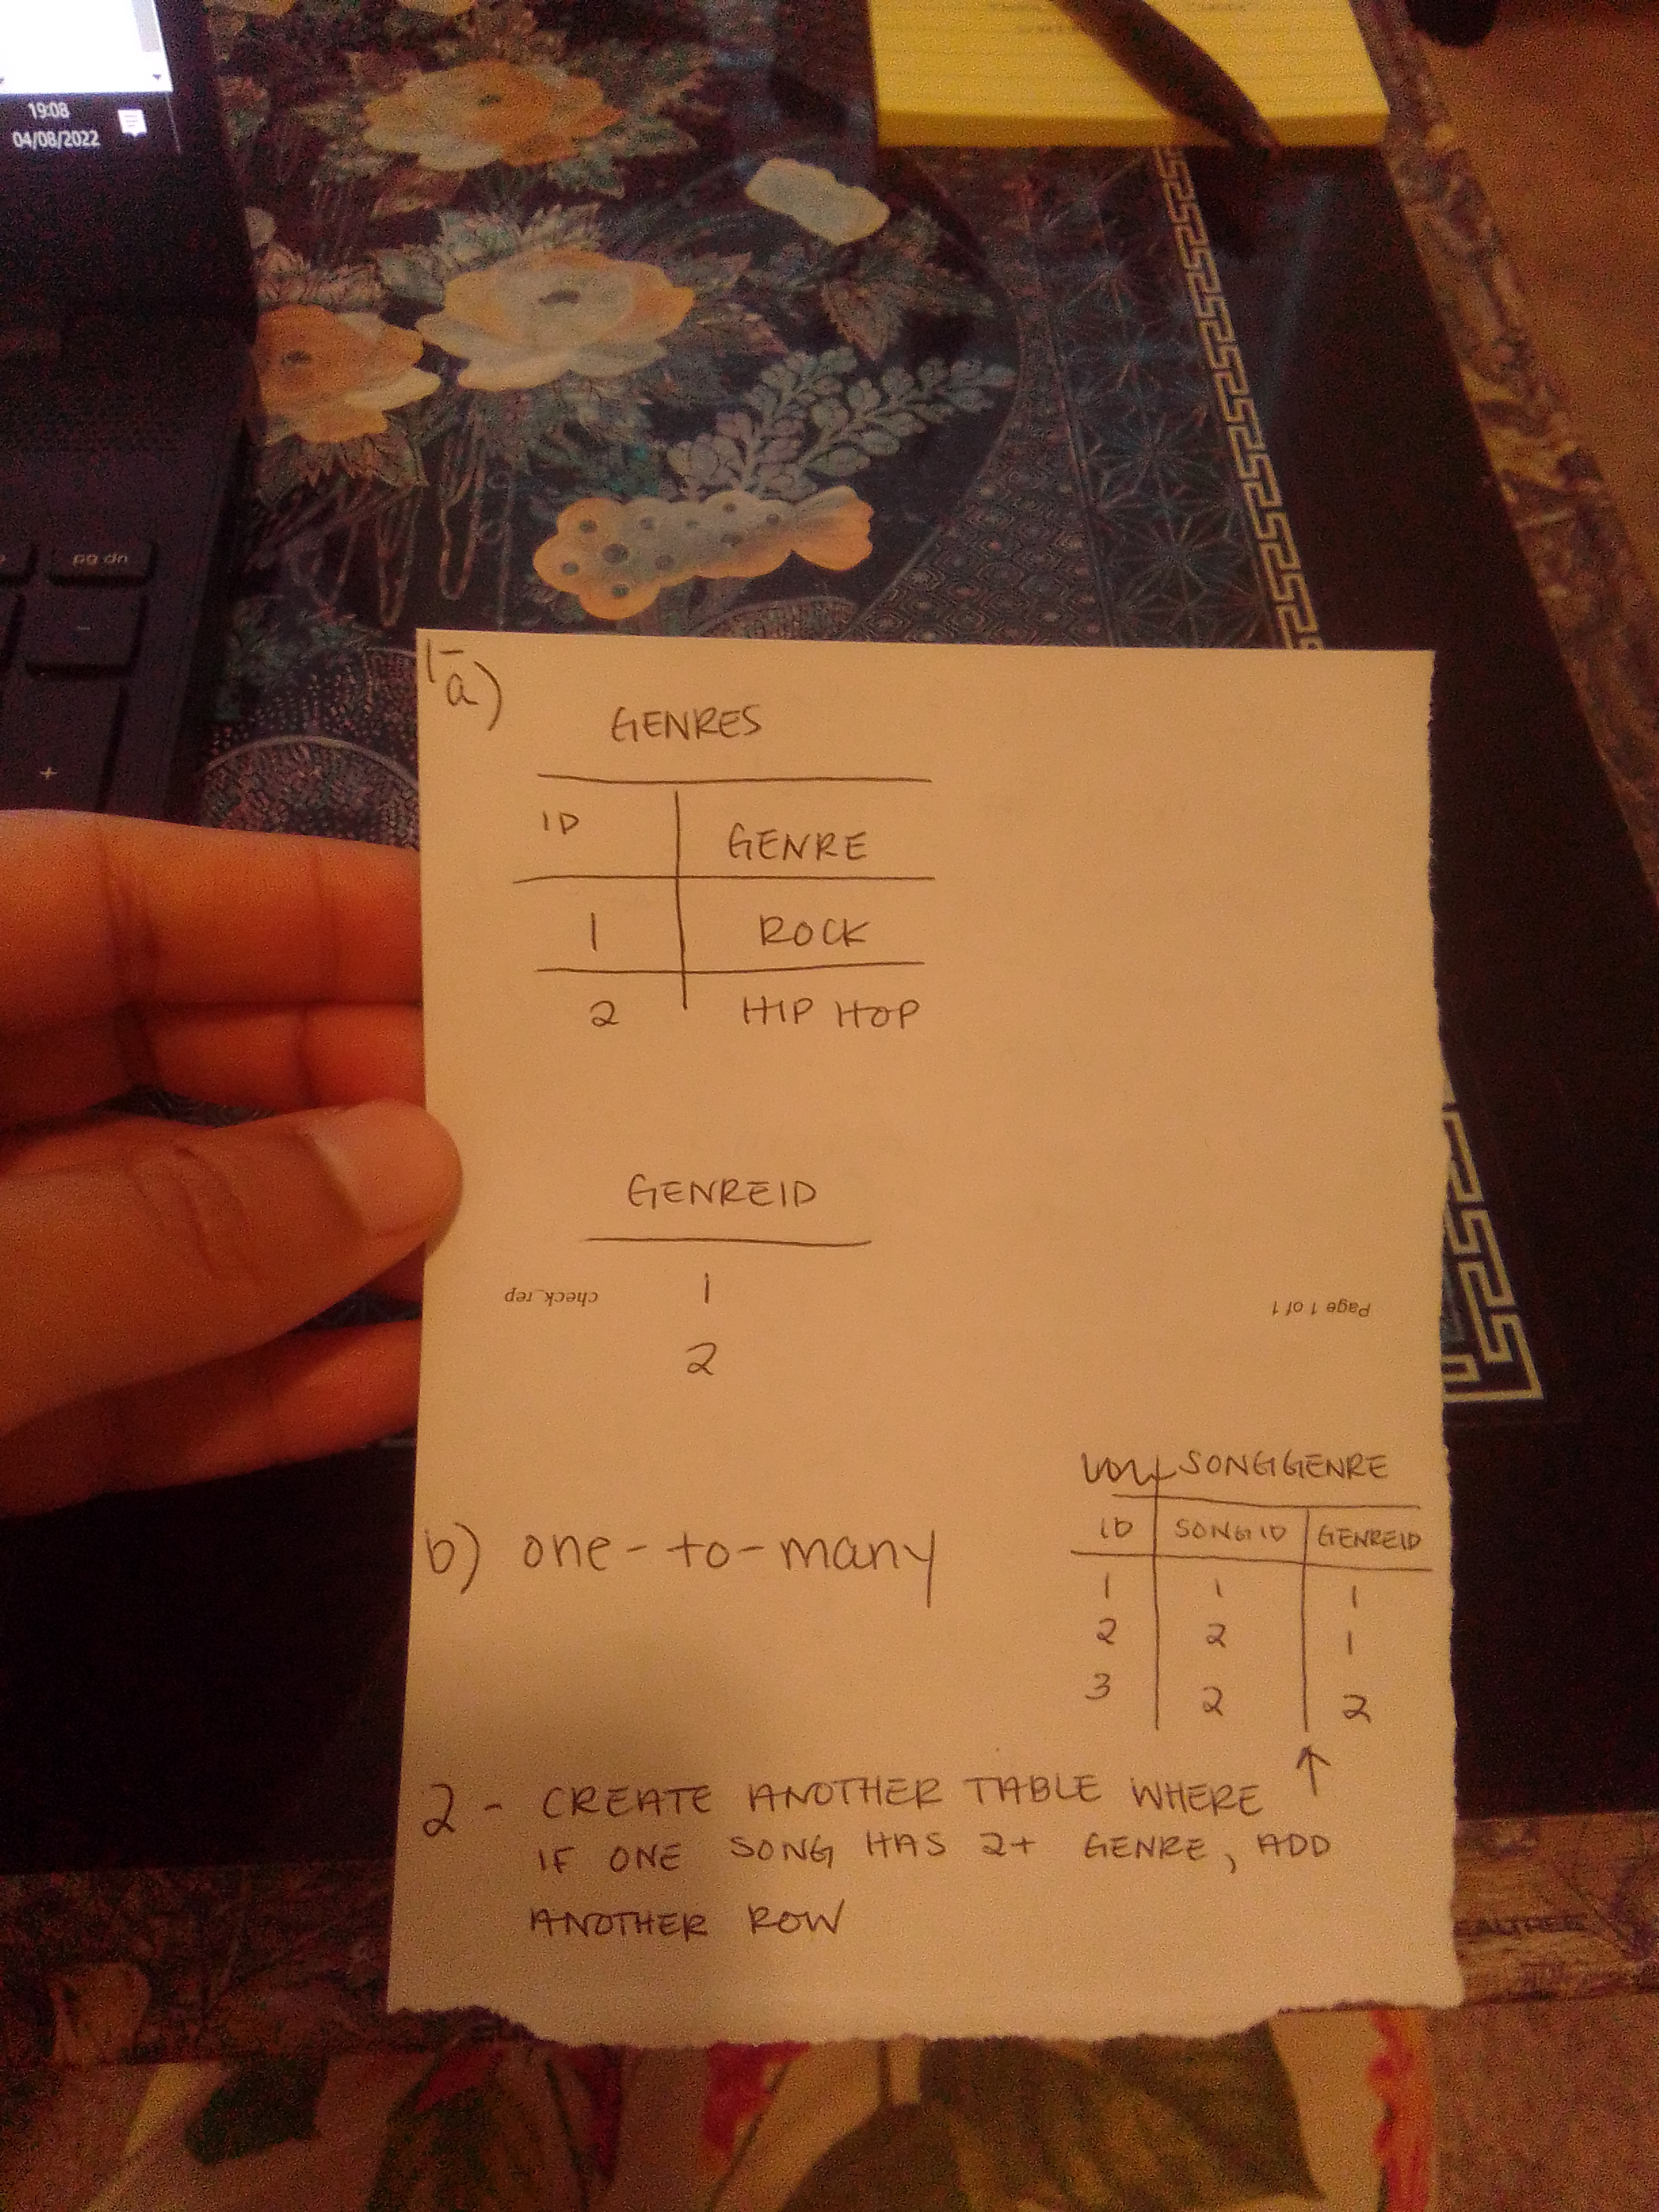 19:08
04/08/2022
pg dn
-
+
1-
a)
GENRES
ID GENRE
1 ROCK
2 HIP HOP
GENREID
1
2
check_rep
Page 1 of 1
b) one-to-many
SONGGENRE
ID SONGID GENREID
1 1 1
2 2 1
3 2 2
2 - CREATE ANOTHER TABLE WHERE ↑
IF ONE SONG HAS 2+ GENRE, ADD
ANOTHER ROW